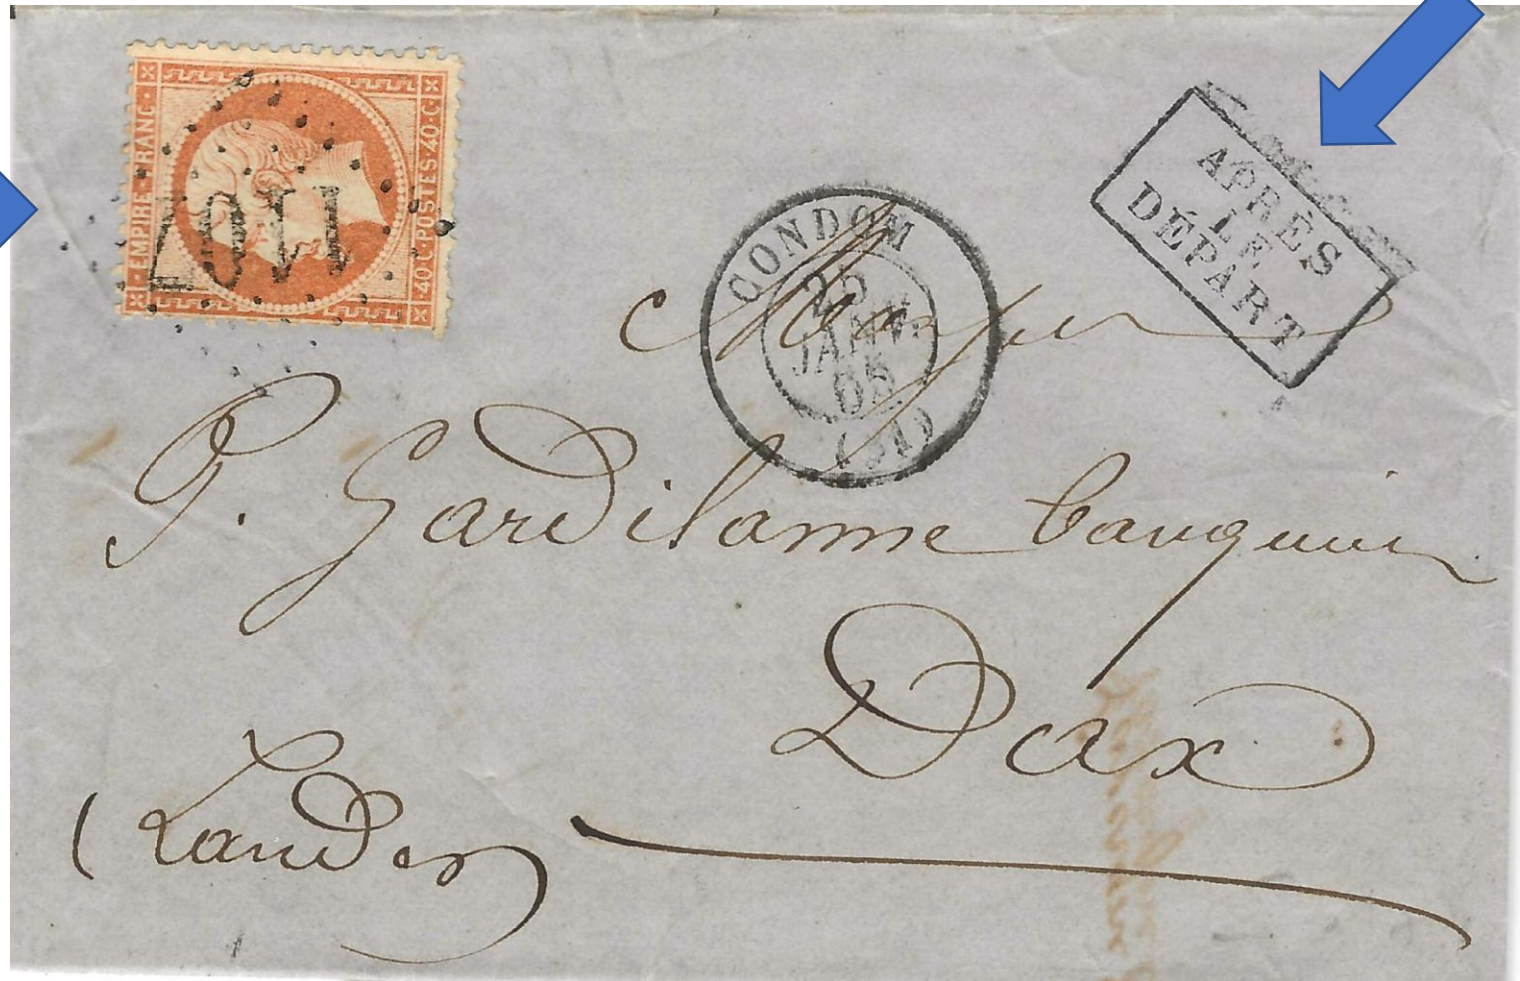 EMPIRE FRANC
40 C POSTES 40 C
1167
CONDOM
22
JANV.
65
(31)
APRÈS
LE
DÉPART
P. Gardilanne banquier
Dax
(Landes)